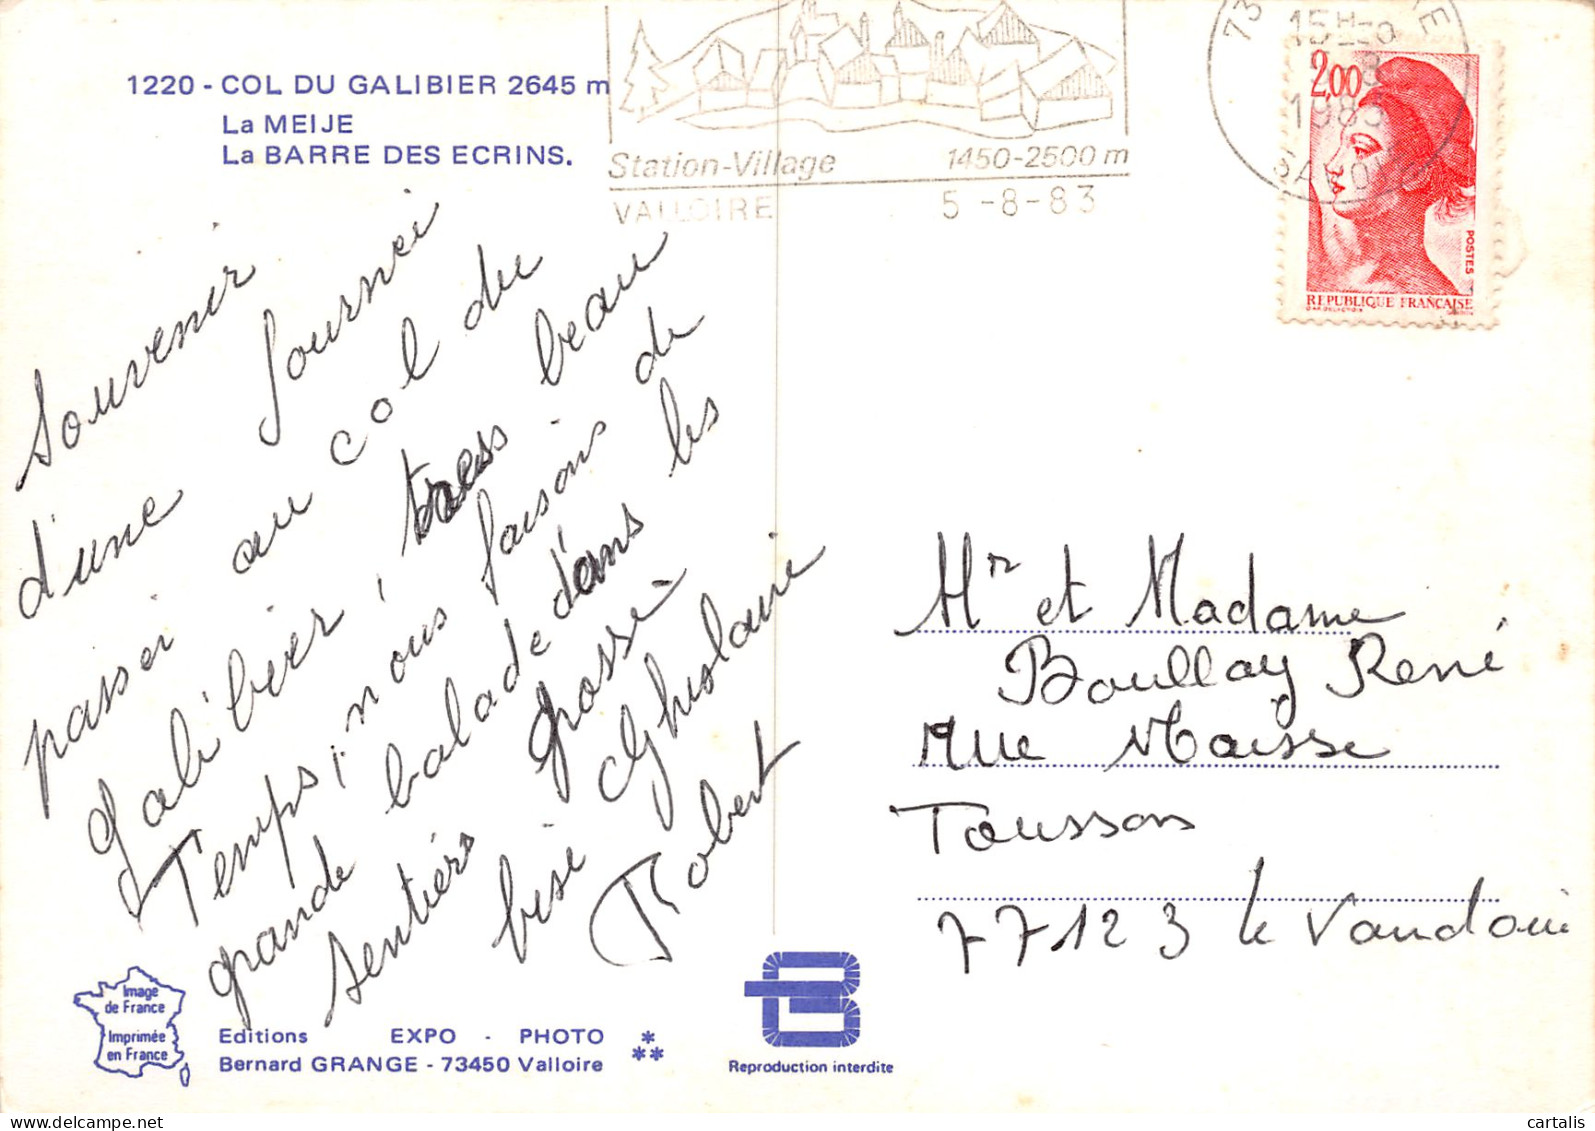 1220 - COL DU GALIBIER 2645 m
La MEIJE
La BARRE DES ECRINS.
Station-Village 1450-2500 m
VALLOIRE 5 -8-83
15H
1983
SAVOIE
2,00
POSTES
REPUBLIQUE FRANÇAISE
Souvenir
d'une journei
passer au col du
Galibier, tres beau
Temps ; nous faisons de
grande balade dans les
sentiers grosse
bise Ghislaine
Robert
Mr et Madame
Boullay René
Rue Maisse
Tousson
77123 le Vaudoui
Image
de France
Imprimée
en France
Editions EXPO - PHOTO
Bernard GRANGE - 73450 Valloire
Reproduction interdite
cartalis